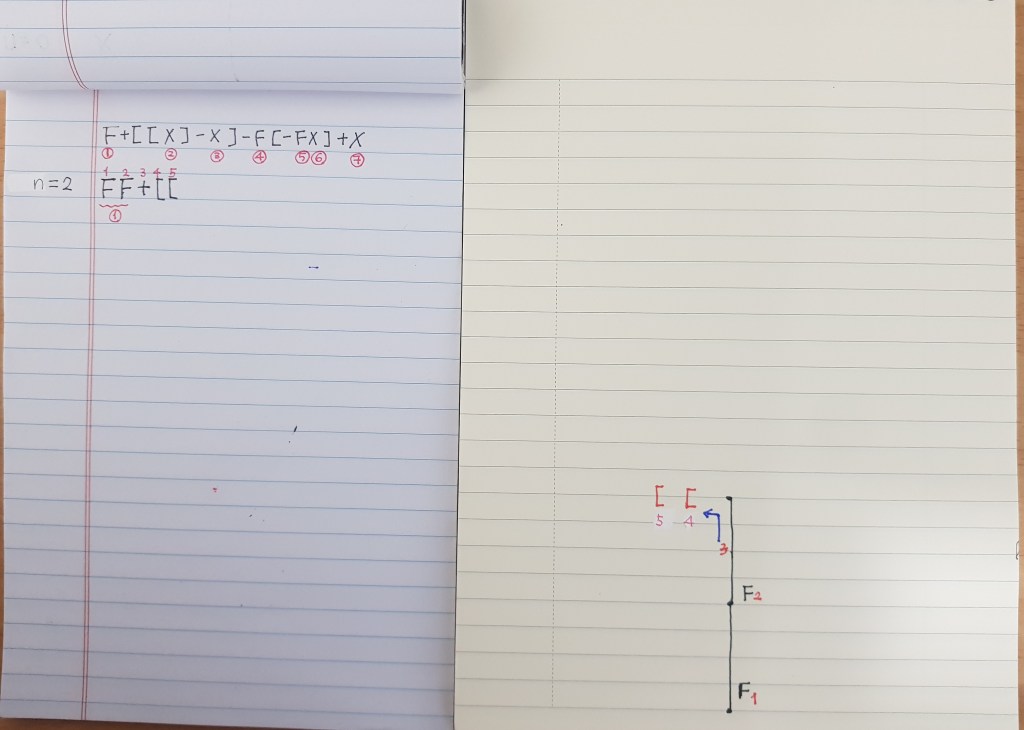 F+[[X]-X]-F[-FX]+X
① ② ③ ④ ⑤⑥ ⑦
1 2 3 4 5
n=2 FF+[[
①
[ [
5 4
3
F2
F1